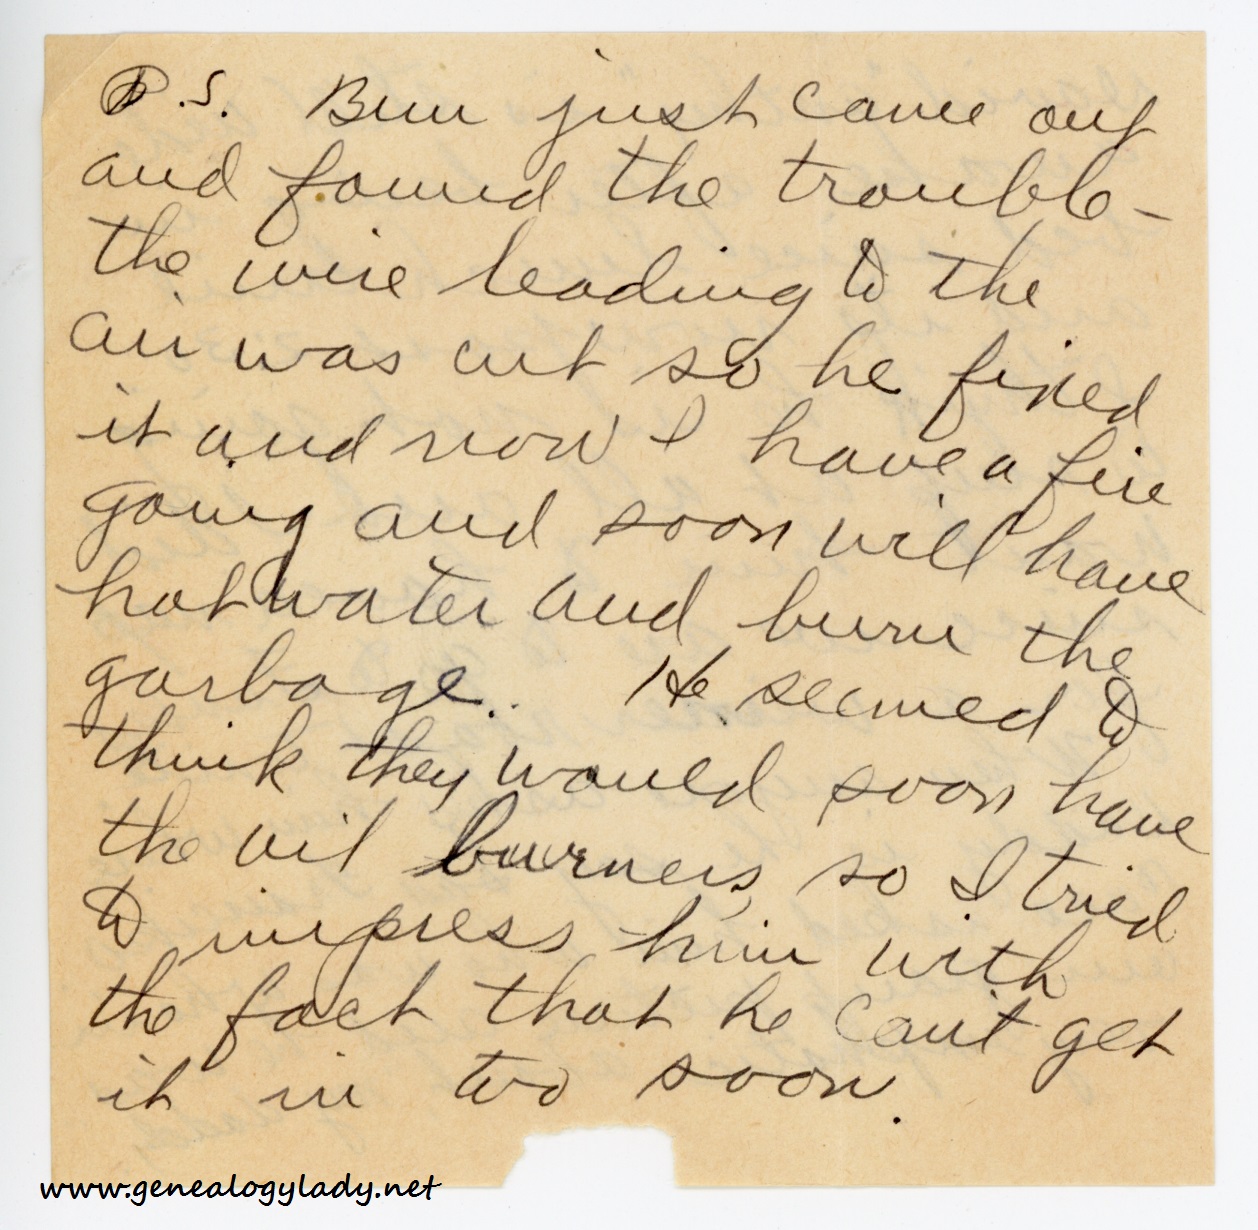 P.S. Bun just came out
and found the trouble -
the wire leading to the
air was cut so he fixed
it and now I have a fire
going and soon will have
hot water and burn the
garbage.. He seemed to
think they would soon have
the oil burners, so I tried
to impress him with
the fact that he can't get
it in too soon.
www.genealogylady.net